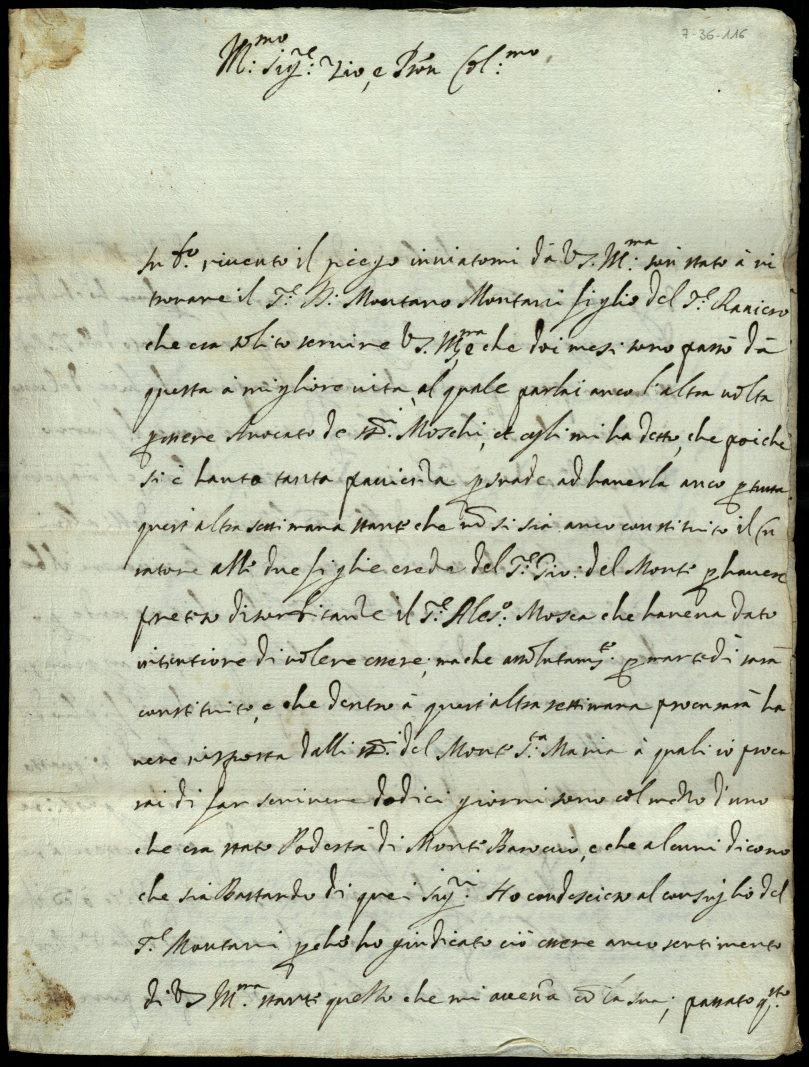 7-36-116
M:mo Sigre: Zio, e Pron Col:mo
riceuto il piego inviatomi dà V.S. M:ma son stato à ri
trovare il S.r Montano Montani figlio del S.r Raniero
che era solito servire V.S. M:ma e che doi mesi sono passò dà
questa à migliore vita, al quale parlai anco l'altra volta
essere Avocato de Moschi, et egli mi ha detto, che poiche
si è hauto tanta patienza ad haverla anco
quest'altra settimana stante che nō si sia anco constituito il Cu
ratore alle due figlie erede del S.r Gio: del Monte havere
il S.r Ales.o: Mosca che haveva dato
intentione di volere essere, ma che assolutamte: martedì sarà
constituito, e che dentro à quest'altra settimana procurarà ha
vere risposta dalli del Monte S.ta Maria à quali io procu
rai di far scrivere dodici giorni sono col mezzo d'uno
che era stato Podestà di Monte Baroccio, e che alcuni dicono
che sia Bastardo di quei Sigri: Ho condesceso al consiglio del
S.r Montani ho giudicato ciò essere anco sentimento
di V.S. M:ma stante quello che mi accenā cō la sua; passato q:sto